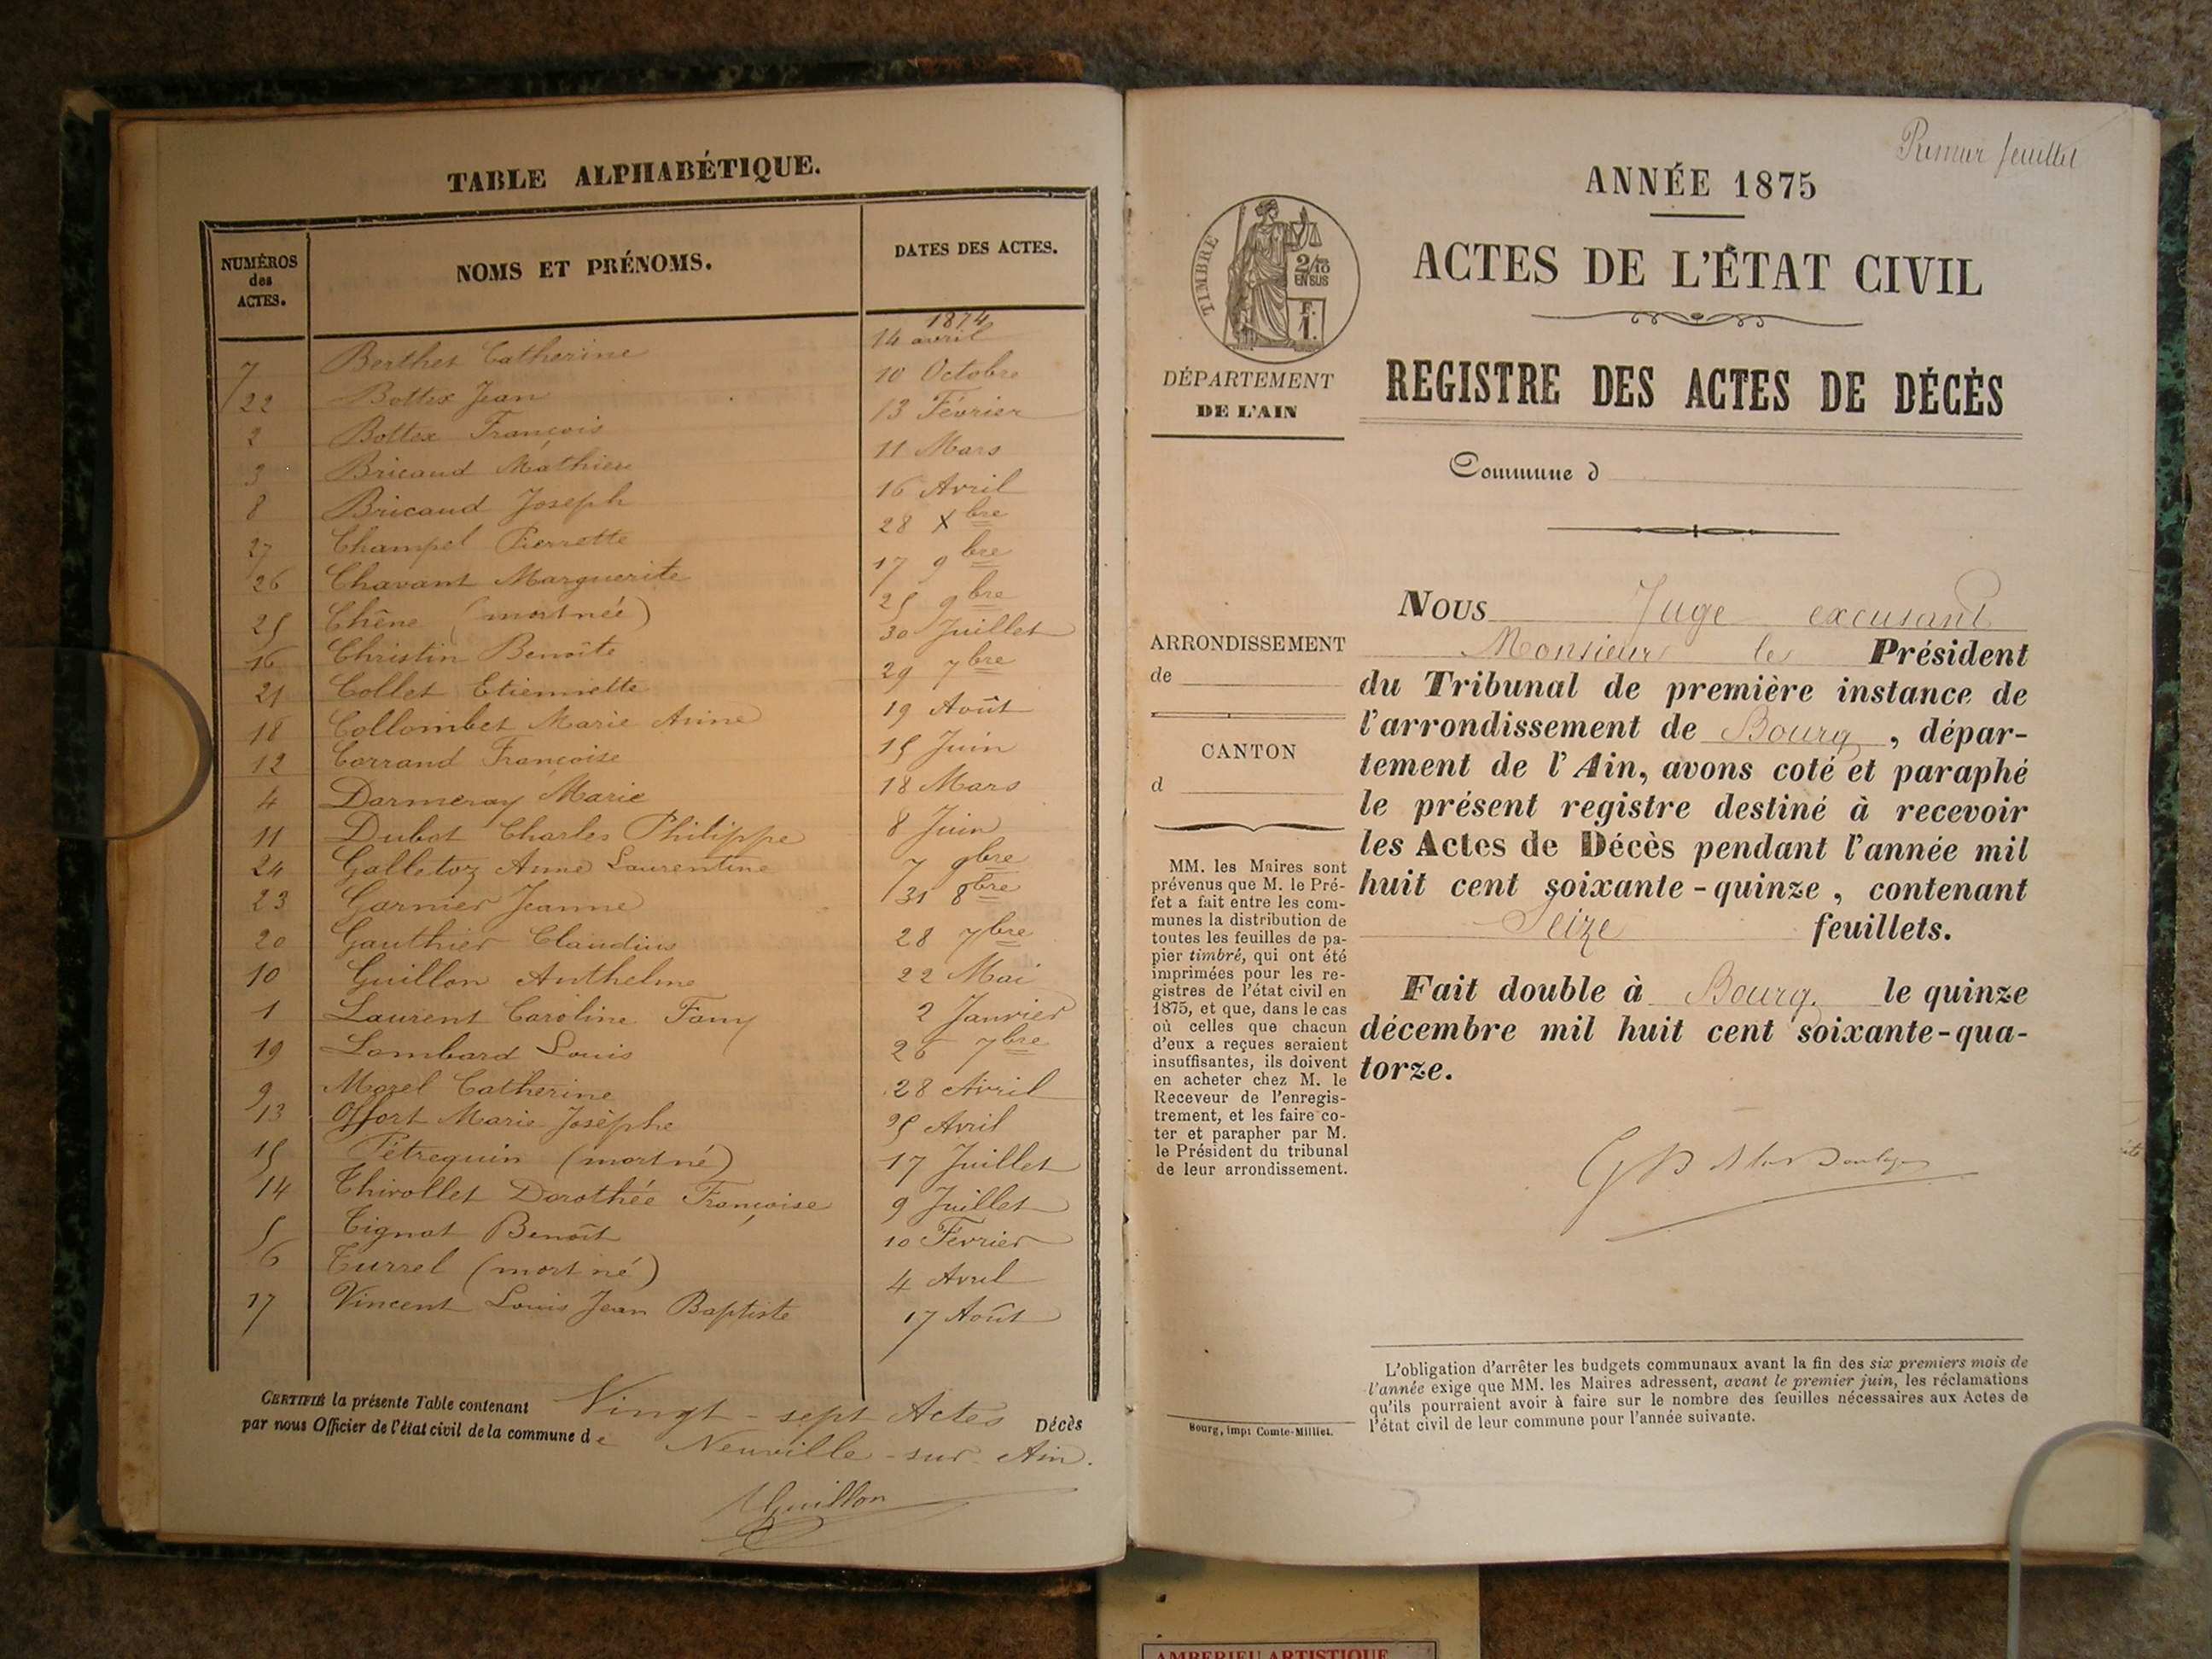 TABLE ALPHABÉTIQUE.
NUMÉROS des ACTES. NOMS ET PRÉNOMS. DATES DES ACTES.
1874
7 Berthet Catherine 14 avril
22 Bottex Jean 10 Octobre
2 Bottex François 13 Février
3 Bricaud Mathieu 11 Mars
8 Bricaud Joseph 16 Avril
27 Champel Pierrette 28 Xbre
26 Chavant Marguerite 17 9bre
25 Chêne (mort née) 25 9bre
16 Christin Benoîte 30 Juillet
21 Collet Etiennette 29 7bre
18 Collombet Marie Anne 19 Août
12 Corrand Françoise 15 Juin
4 Darmeray Marie 18 Mars
11 Dubot Charles Philippe 8 Juin
24 Galletoz Anne Laurentine 7 9bre
23 Garnier Jeanne 31 8bre
20 Gauthier Claudius 28 7bre
10 Guillon Anthelme 22 Mai
1 Laurent Caroline Fany 2 Janvier
19 Lombard Louis 26 7bre
9 Morel Catherine 28 Avril
13 Offort Marie Josèphe 25 Avril
15 Pétrequin (mort né) 17 Juillet
14 Thivollet Dorothée Françoise 9 Juillet
5 Tignat Benoît 10 Février
6 Turrel (mort né) 4 Avril
17 Vincent Louis Jean Baptiste 17 Août
CERTIFIÉ la présente Table contenant Vingt-sept Actes Décès
par nous Officier de l'état civil de la commune de Neuville-sur-Ain.
Guillon
Premier feuillet
ANNÉE 1875
TIMBRE
2/10
EN SUS
F.
1.
ACTES DE L'ÉTAT CIVIL
DÉPARTEMENT
DE L'AIN
REGISTRE DES ACTES DE DÉCÈS
Commune d
ARRONDISSEMENT
de
CANTON
d
MM. les Maires sont
prévenus que M. le Pré-
fet a fait entre les com-
munes la distribution de
toutes les feuilles de pa-
pier timbré, qui ont été
imprimées pour les re-
gistres de l'état civil en
1875, et que, dans le cas
où celles que chacun
d'eux a reçues seraient
insuffisantes, ils doivent
en acheter chez M. le
Receveur de l'enregis-
trement, et les faire co-
ter et parapher par M.
le Président du tribunal
de leur arrondissement.
Bourg, imp: Comte-Milliet.
NOUS Juge excusant
Monsieur le Président
du Tribunal de première instance de
l'arrondissement de Bourg, dépar-
tement de l'Ain, avons coté et paraphé
le présent registre destiné à recevoir
les Actes de Décès pendant l'année mil
huit cent soixante-quinze, contenant
Seize feuillets.
Fait double à Bourg, le quinze
décembre mil huit cent soixante-qua-
torze.
L'obligation d'arrêter les budgets communaux avant la fin des six premiers mois de
l'année exige que MM. les Maires adressent, avant le premier juin, les réclamations
qu'ils pourraient avoir à faire sur le nombre des feuilles nécessaires aux Actes de
l'état civil de leur commune pour l'année suivante.
AMBERIEU ARTISTIQUE